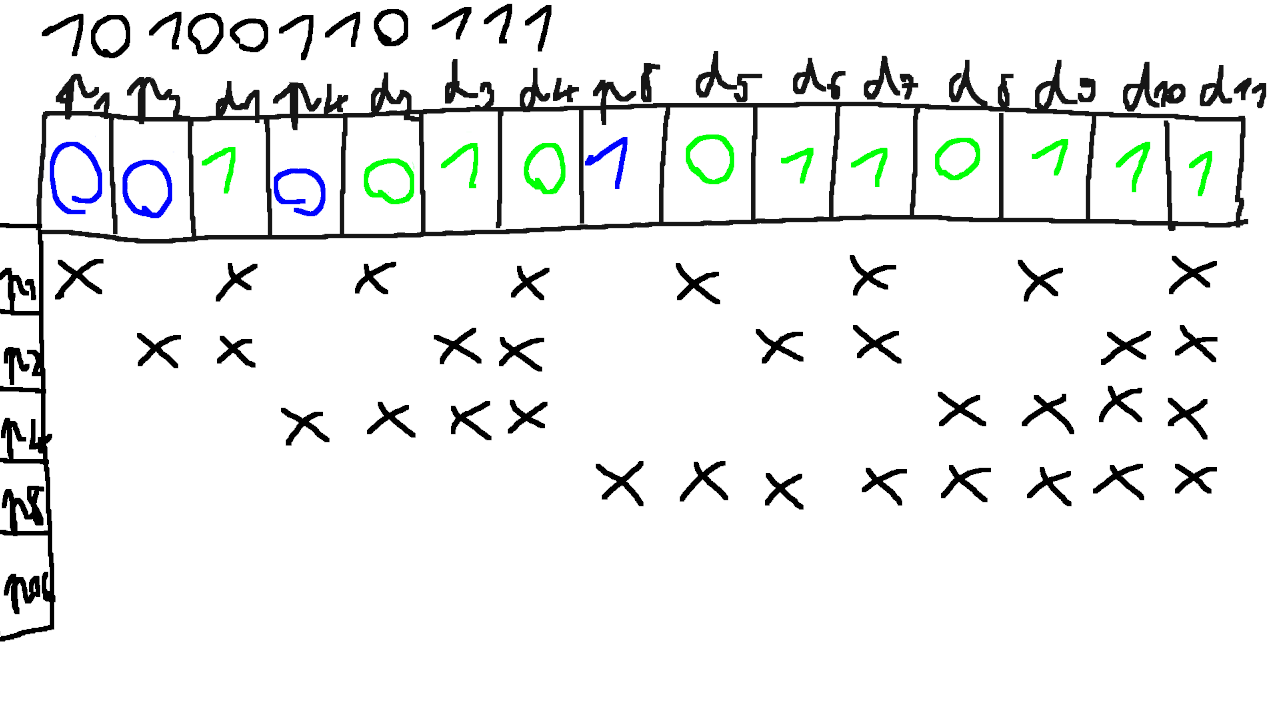 10 100110 111
p1 p2 d1 p4 d2 d3 d4 p8 d5 d6 d7 d8 d9 d10 d11
0 0 1 0 0 1 0 1 0 1 1 0 1 1 1
p1 x x x x x x x x
p2 x x x x x x x x
p4 x x x x x x x x
p8 x x x x x x x x